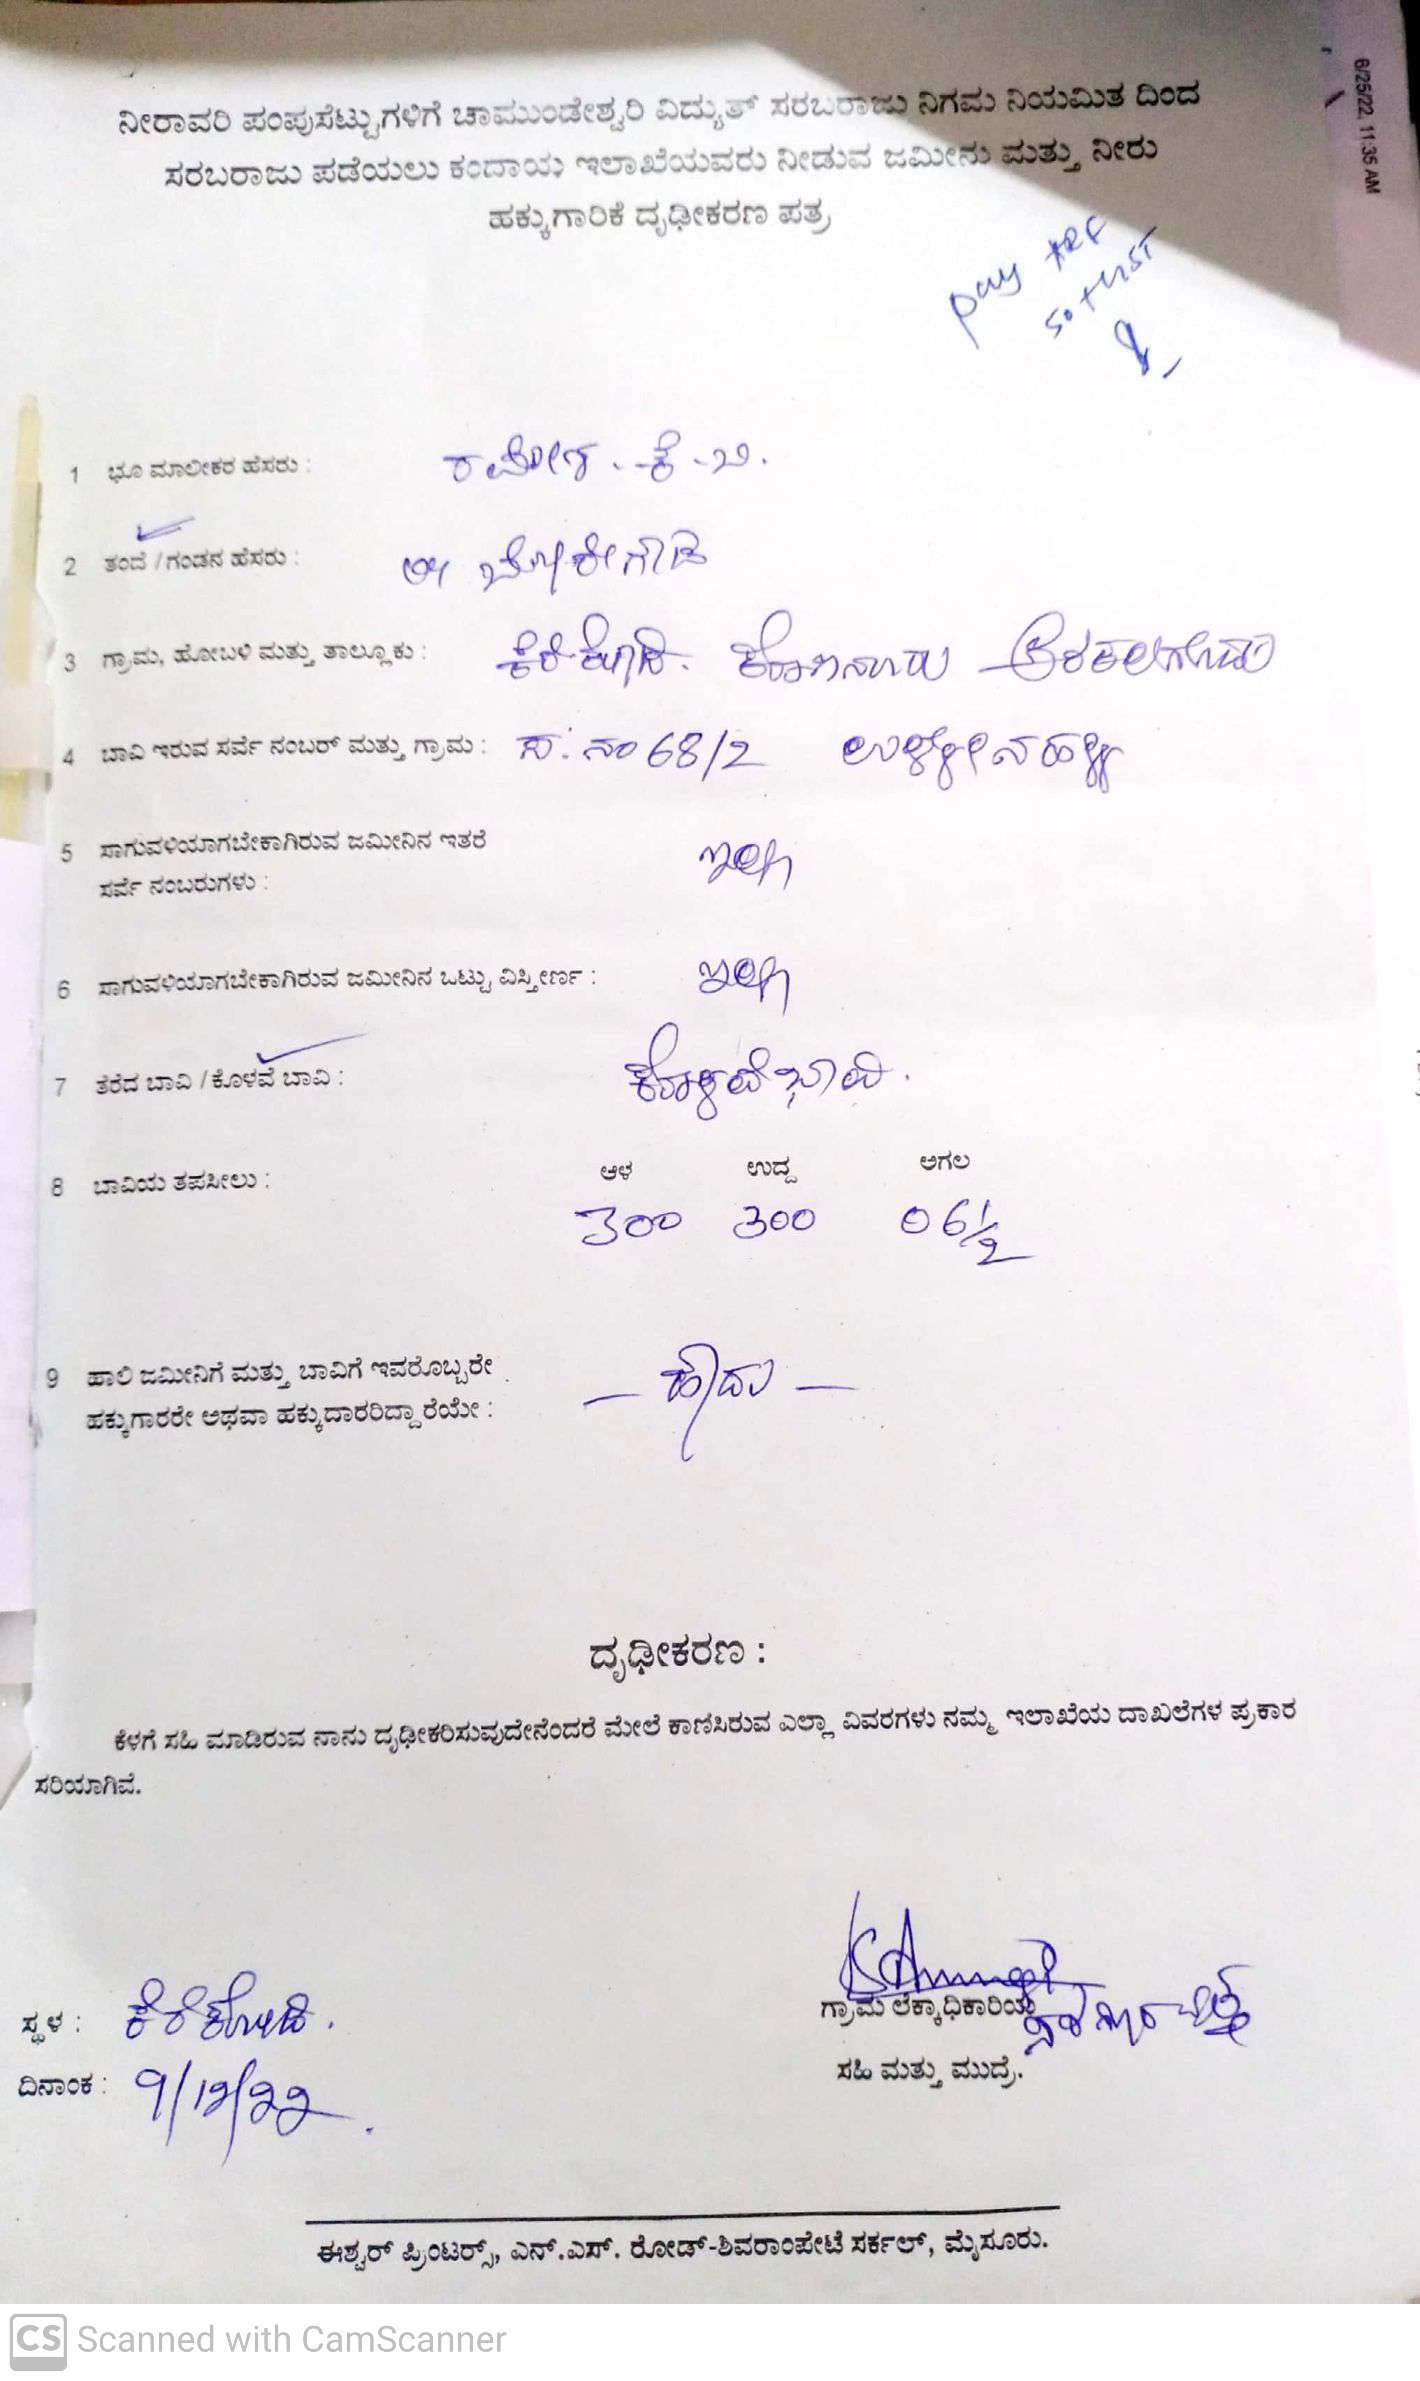 6/25/22, 11:35 AM
ನೀರಾವರಿ ಪಂಪುಸೆಟ್ಟುಗಳಿಗೆ ಚಾಮುಂಡೇಶ್ವರಿ ವಿದ್ಯುತ್ ಸರಬರಾಜು ನಿಗಮ ನಿಯಮಿತ ದಿಂದ
ಸರಬರಾಜು ಪಡೆಯಲು ಕಂದಾಯ ಇಲಾಖೆಯವರು ನೀಡುವ ಜಮೀನು ಮತ್ತು ನೀರು
ಹಕ್ಕುಗಾರಿಕೆ ದೃಢೀಕರಣ ಪತ್ರ
pay ARF
50 + GST
1 ಭೂ ಮಾಲೀಕರ ಹೆಸರು : ರಮೇಶ. ಕೆ. ಬಿ.
2 ತಂದೆ / ಗಂಡನ ಹೆಸರು : ಬೋರೇಗೌಡ
3 ಗ್ರಾಮ, ಹೋಬಳಿ ಮತ್ತು ತಾಲ್ಲೂಕು : ಕೆರೆಕೋಡಿ. ಕೊಣನೂರು ಅರಕಲಗೂಡು
4 ಬಾವಿ ಇರುವ ಸರ್ವೆ ನಂಬರ್ ಮತ್ತು ಗ್ರಾಮ : ಸ. ನಂ 68/2 ಉಳ್ಳೇನಹಳ್ಳಿ
5 ಸಾಗುವಳಿಯಾಗಬೇಕಾಗಿರುವ ಜಮೀನಿನ ಇತರೆ
ಸರ್ವೆ ನಂಬರುಗಳು : ಇಲ್ಲ
6 ಸಾಗುವಳಿಯಾಗಬೇಕಾಗಿರುವ ಜಮೀನಿನ ಒಟ್ಟು ವಿಸ್ತೀರ್ಣ : ಇಲ್ಲ
7 ತೆರೆದ ಬಾವಿ / ಕೊಳವೆ ಬಾವಿ : ಕೊಳವೆ ಬಾವಿ.
ಆಳ ಉದ್ದ ಅಗಲ
8 ಬಾವಿಯ ತಪಸೀಲು : 300 300 06 1/2
9 ಹಾಲಿ ಜಮೀನಿಗೆ ಮತ್ತು ಬಾವಿಗೆ ಇವರೊಬ್ಬರೇ
ಹಕ್ಕುಗಾರರೇ ಅಥವಾ ಹಕ್ಕುದಾರರಿದ್ದಾರೆಯೇ : — ಹೌದು —
ದೃಢೀಕರಣ :
ಕೆಳಗೆ ಸಹಿ ಮಾಡಿರುವ ನಾನು ದೃಢೀಕರಿಸುವುದೇನೆಂದರೆ ಮೇಲೆ ಕಾಣಿಸಿರುವ ಎಲ್ಲಾ ವಿವರಗಳು ನಮ್ಮ ಇಲಾಖೆಯ ದಾಖಲೆಗಳ ಪ್ರಕಾರ
ಸರಿಯಾಗಿವೆ.
ಸ್ಥಳ : ಕೆರೆಕೋಡಿ.
ಗ್ರಾಮ ಲೆಕ್ಕಾಧಿಕಾರಿಯ
ಸಹಿ ಮತ್ತು ಮುದ್ರೆ.
ದಿನಾಂಕ : 9/12/22.
ಈಶ್ವರ್ ಪ್ರಿಂಟರ್ಸ್, ಎನ್.ಎಸ್. ರೋಡ್-ಶಿವರಾಂಪೇಟೆ ಸರ್ಕಲ್, ಮೈಸೂರು.
CS Scanned with CamScanner